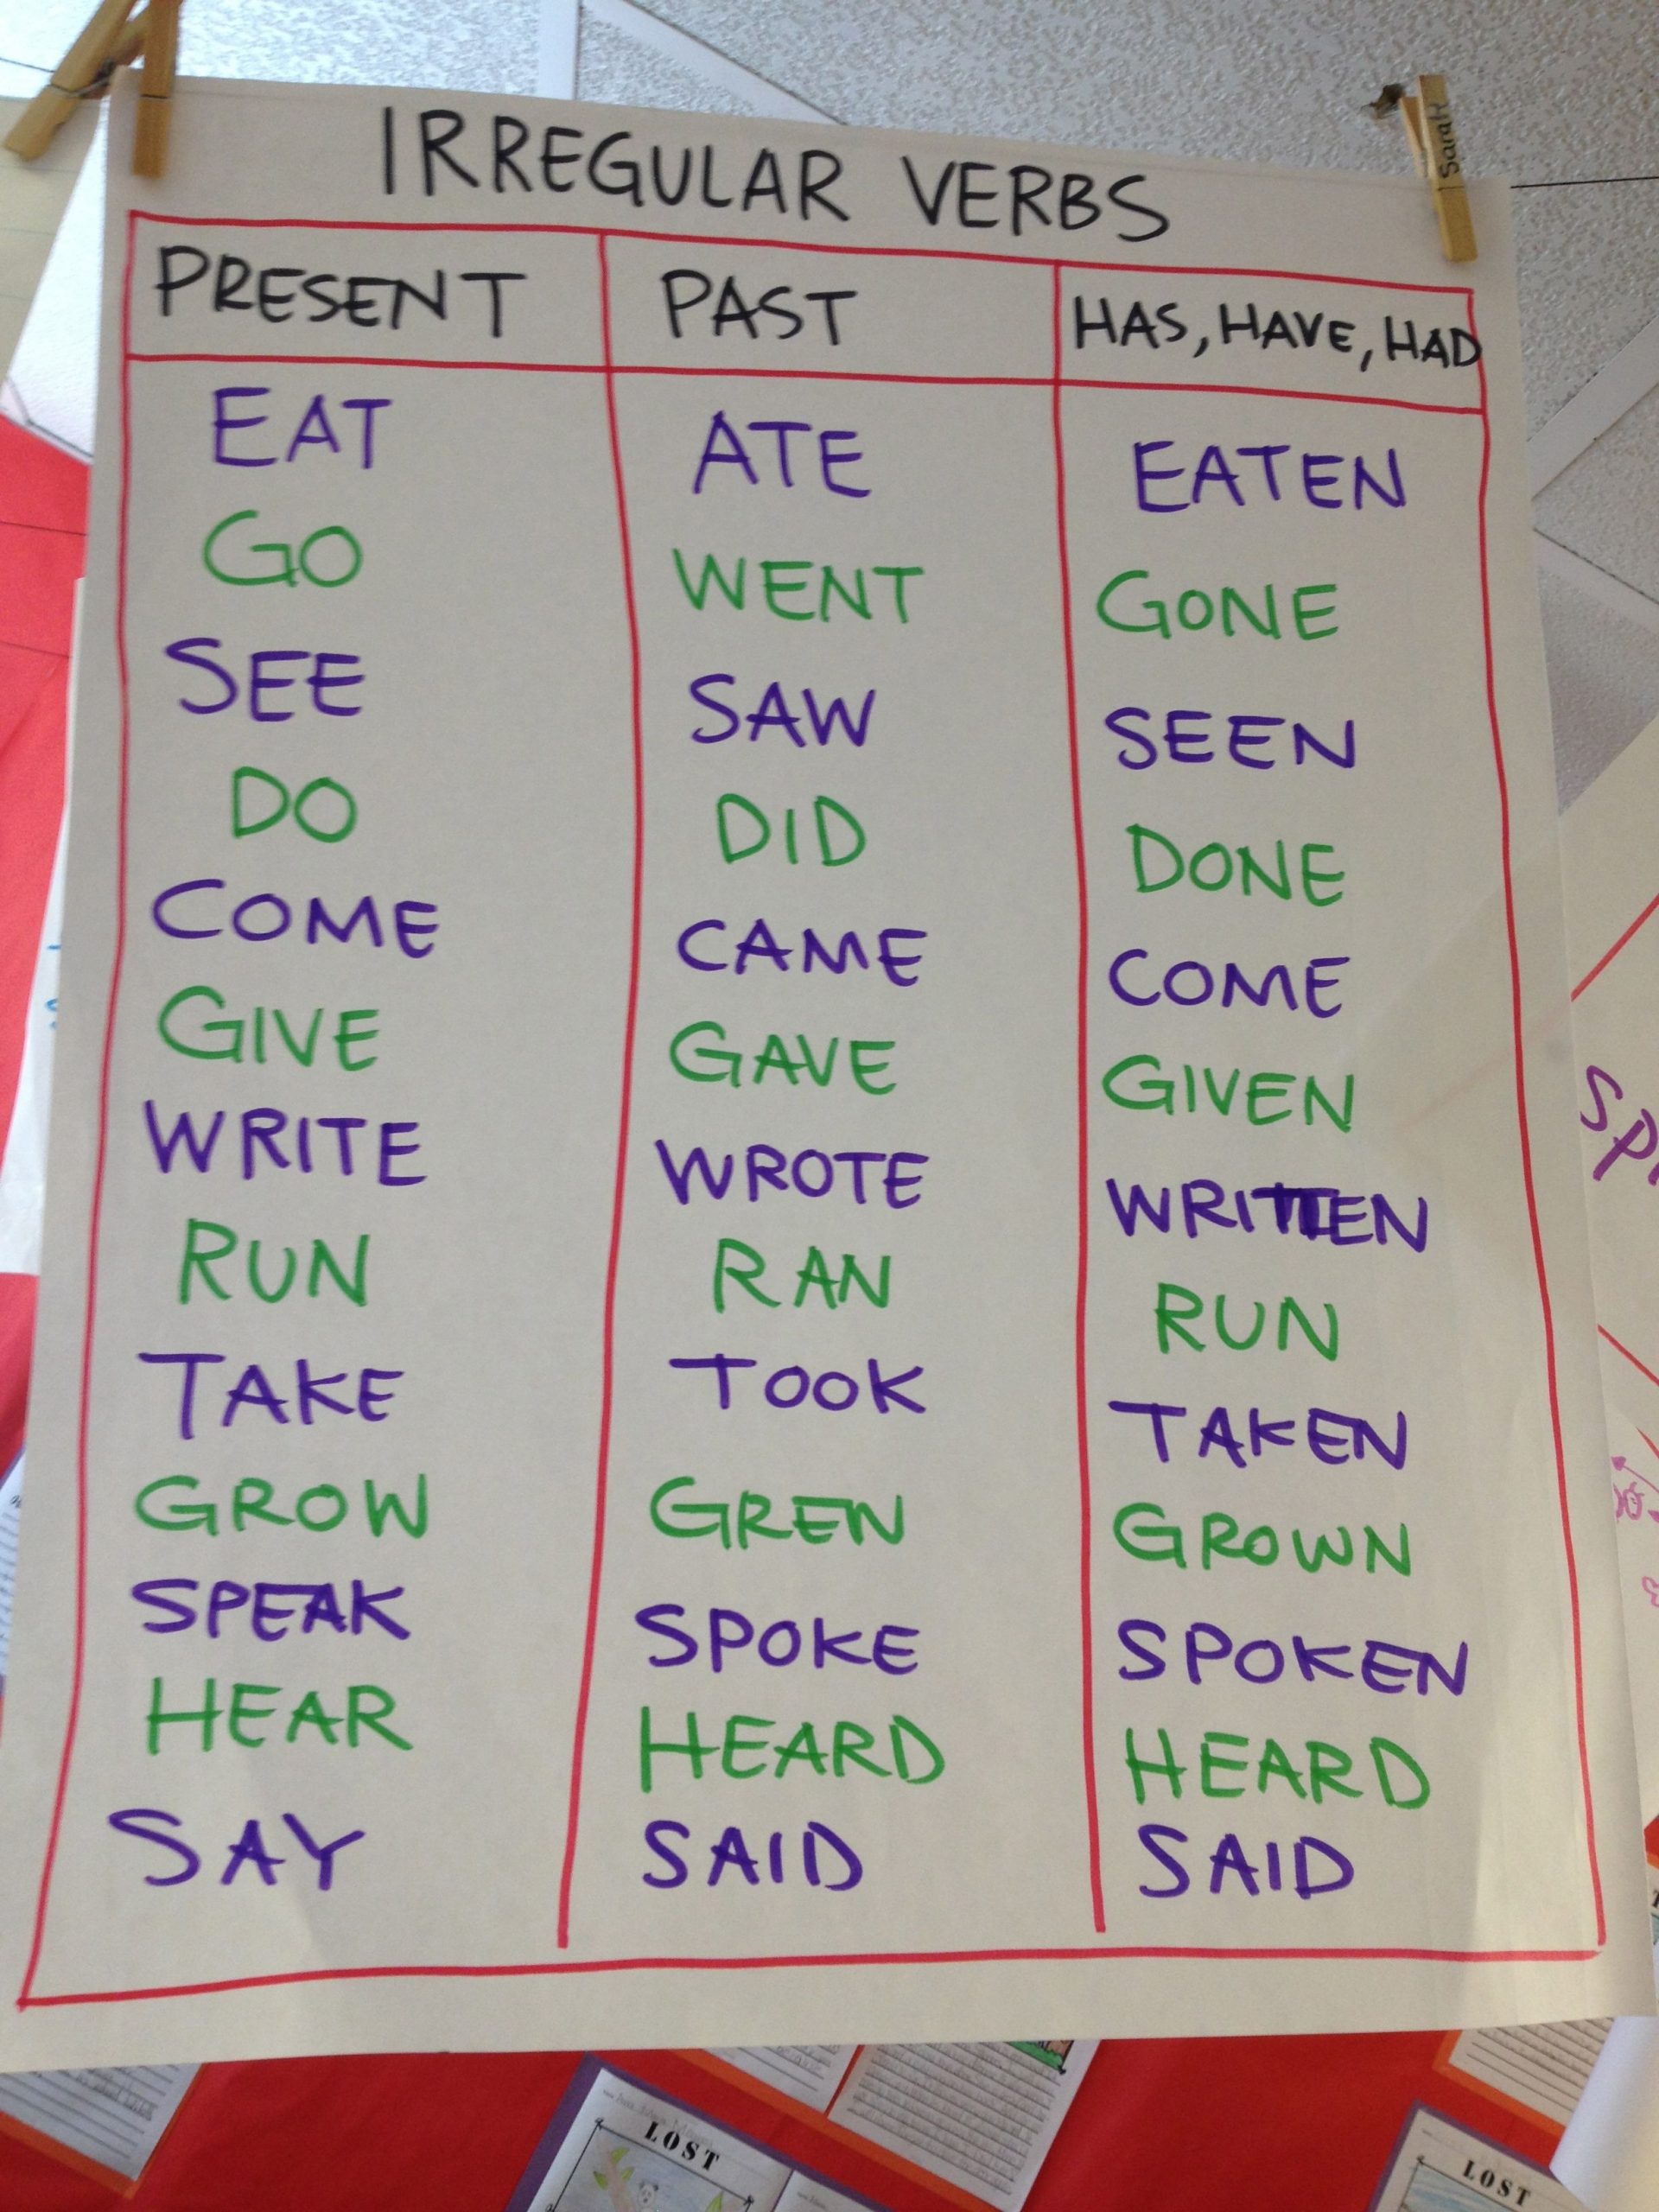 Sarah
IRREGULAR VERBS
PRESENT PAST HAS, HAVE, HAD
EAT ATE EATEN
GO WENT GONE
SEE SAW SEEN
DO DID DONE
COME CAME COME
GIVE GAVE GIVEN
WRITE WROTE WRITTEN
RUN RAN RUN
TAKE TOOK TAKEN
GROW GREN GROWN
SPEAK SPOKE SPOKEN
HEAR HEARD HEARD
SAY SAID SAID
LOST
LOST